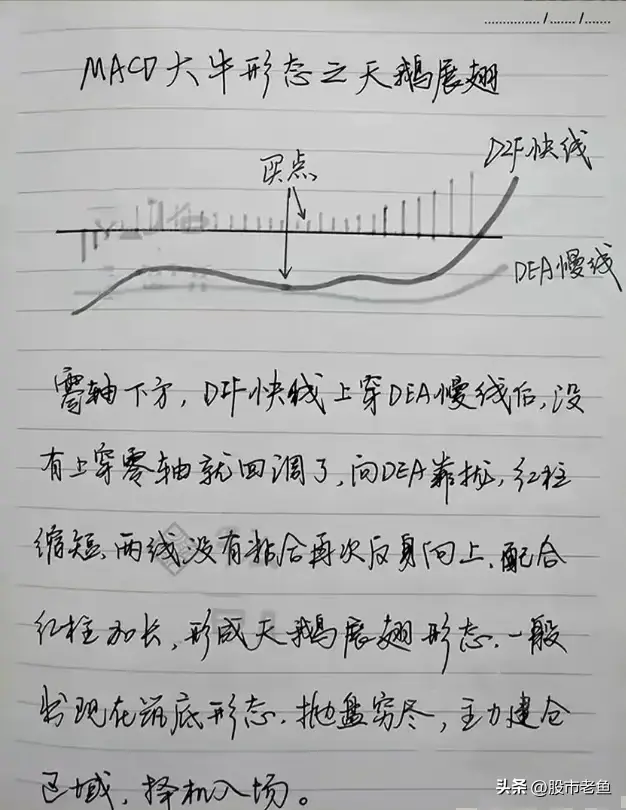 MACD大牛形态之天鹅展翅
买点
DIF快线
DEA慢线
零轴下方，DIF快线上穿DEA慢线后，没
有上穿零轴就回调了，向DEA靠拢，红柱
缩短、两线没有粘合再次反身向上，配合
红柱加长，形成天鹅展翅形态．一般
出现在筑底形态．抛盘穷尽，主力建仓
区域，择机入场。
头条 @股市老鱼